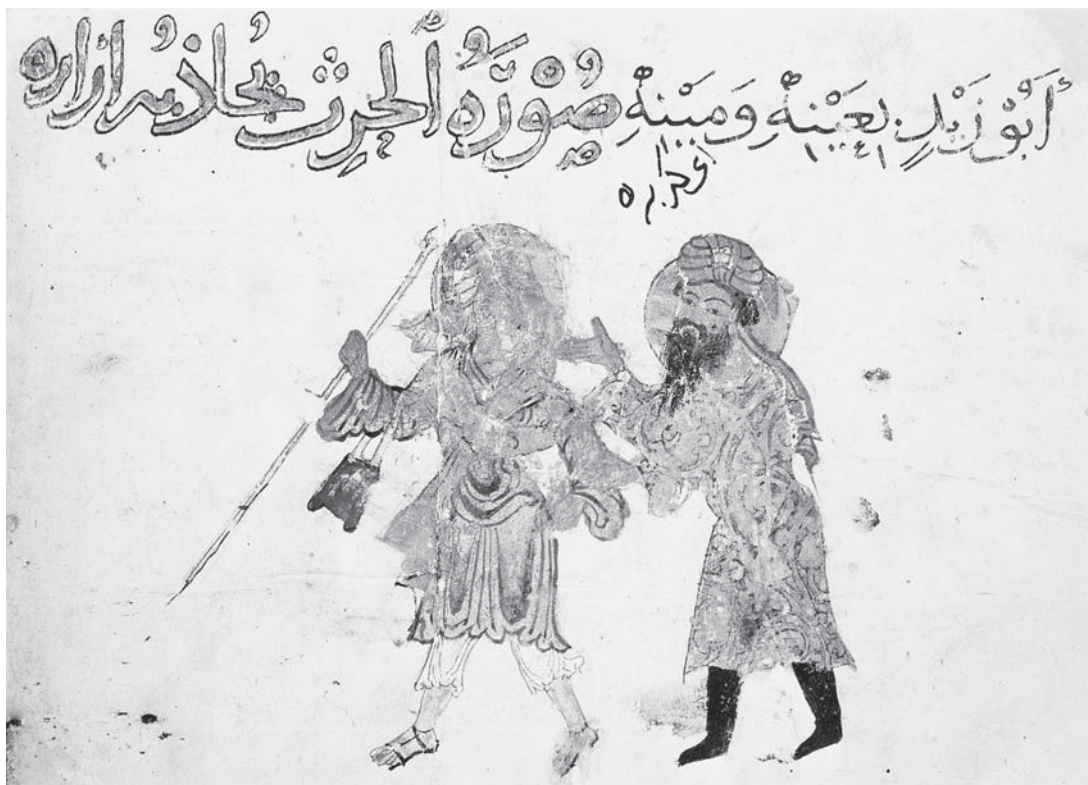 أَبُوْ زَيْدٍ بِعَيْنِهِ وَمَيْنِهِ صُوْرَةُ ٱلْحٰرِثِ يُجَاذِبُهُ إِزَارَهُ